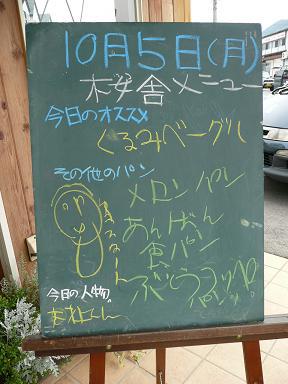 10月5日(月)
桜舎メニュー
今日のオススメ
くるみベーグル
その他のパン
メロンパン
あんぱん
食パン
ぶどうパン
今日の人物